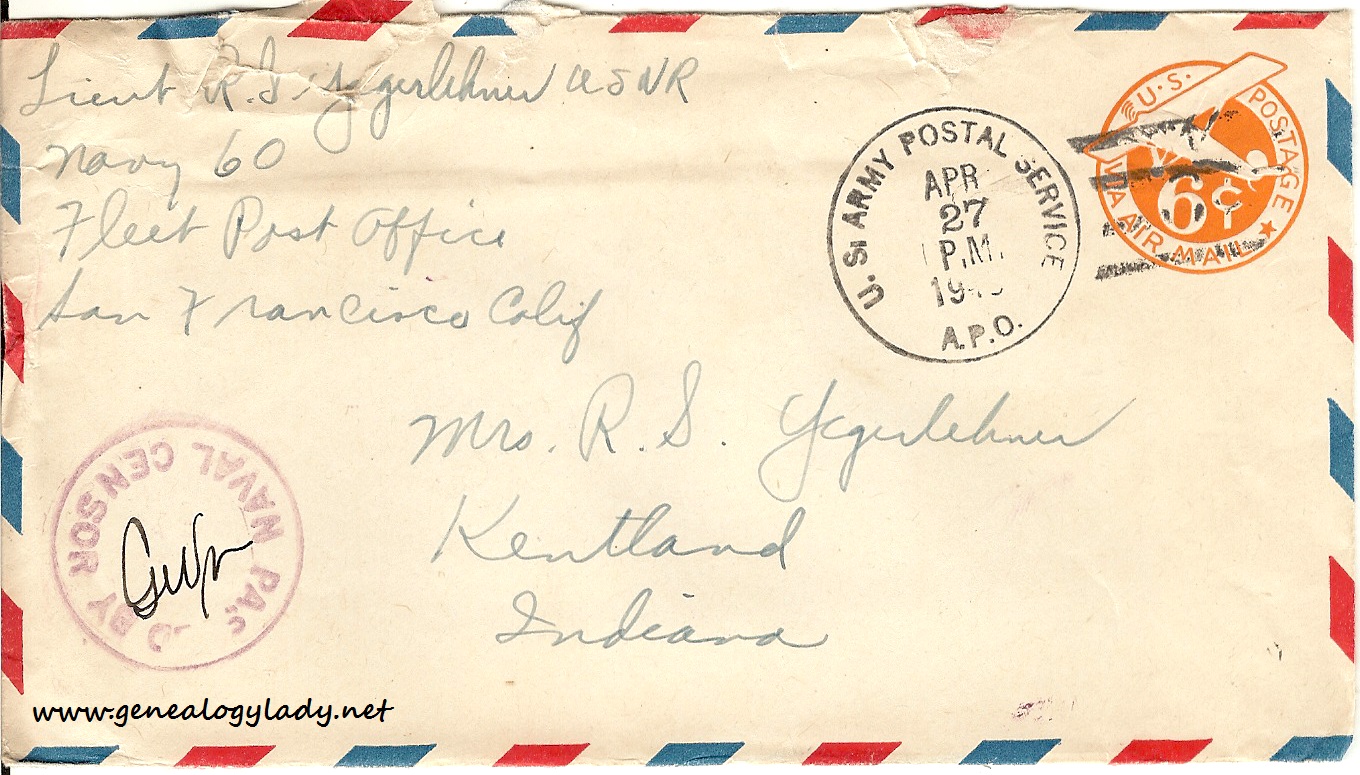 Lieut R. S. Yegerlehner USNR
Navy 60
Fleet Post Office
San Francisco Calif
U.S. ARMY POSTAL SERVICE
APR
27
P.M.
A.P.O.
U.S. POSTAGE
6¢
VIA AIR MAIL
Mrs. R. S. Yegerlehner
Kentland
Indiana
BY NAVAL CENSOR
www.genealogylady.net